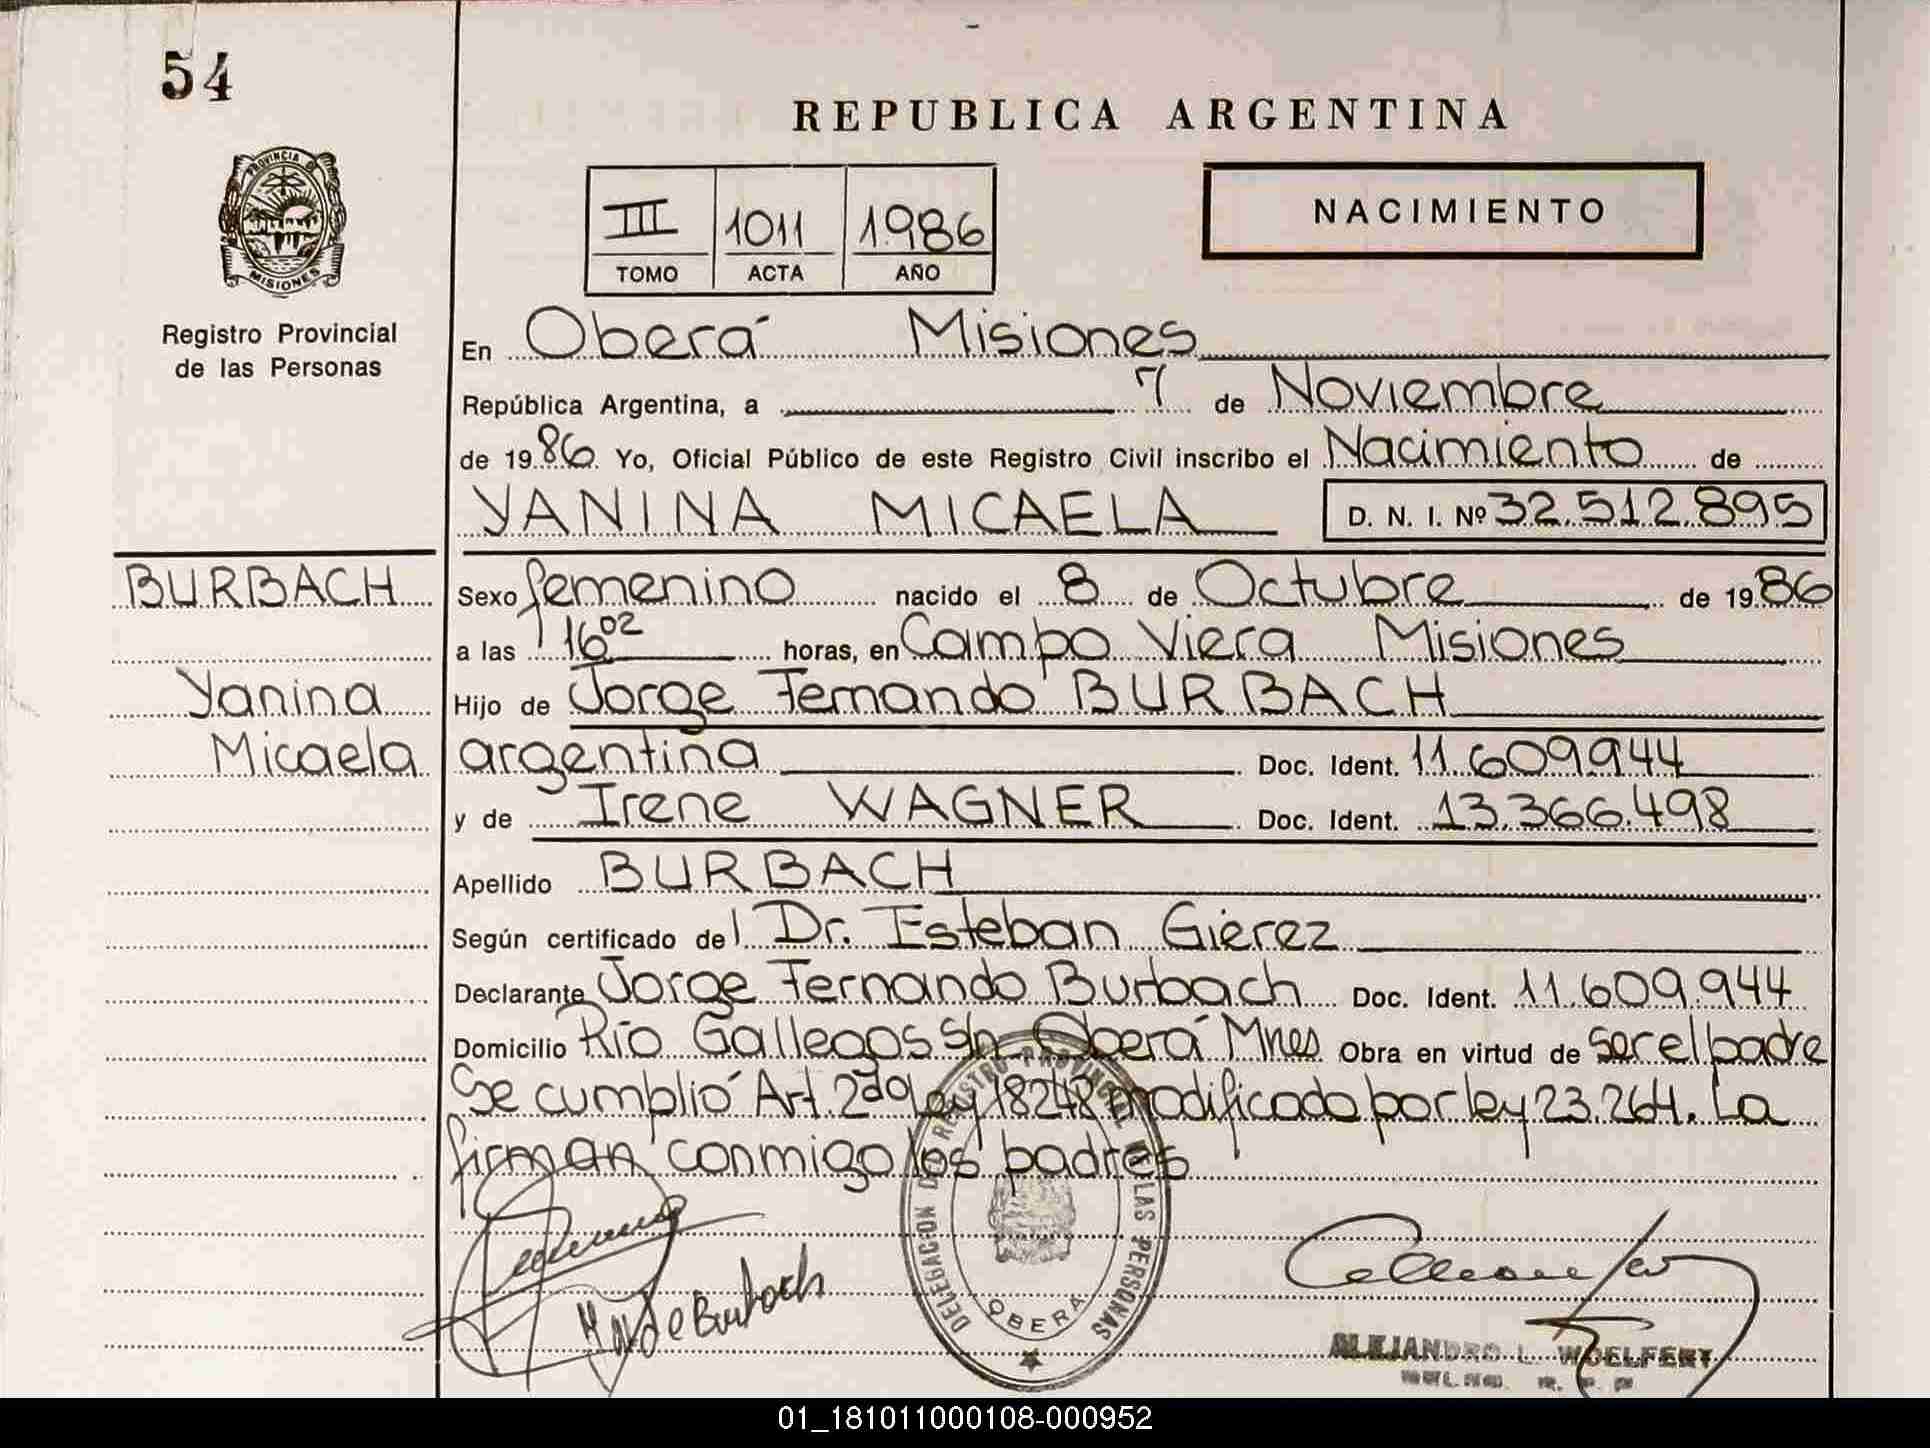 54
REPUBLICA ARGENTINA
PROVINCIA D MISIONES
III 1011 1986
TOMO ACTA AÑO
NACIMIENTO
Registro Provincial
de las Personas
En Oberá Misiones
República Argentina, a 7 de Noviembre
de 1986. Yo, Oficial Público de este Registro Civil inscribo el Nacimiento de
YANINA MICAELA D. N. I. Nº 32.512.895
BURBACH
Yanina
Micaela
Sexo femenino nacido el 8 de Octubre de 1986
a las 16⁰² horas, en Campo Viera Misiones
Hijo de Jorge Fernando BURBACH
argentina Doc. Ident. 11.609.944
y de Irene WAGNER Doc. Ident. 13.366.498
Apellido BURBACH
Según certificado del Dr. Esteban Gierez
Declarante Jorge Fernando Burbach Doc. Ident. 11.609.944
Domicilio Río Gallegos s/n Oberá Mnes Obra en virtud de ser el padre
Se cumplió Art. 2do ley 18248 modificado por ley 23.264. La
firman conmigo los padres
DELEGACION REGISTRO PROVINCIAL DE LAS PERSONAS
OBERA
de Burbach
ALEJANDRO L. WOELFERT
01_181011000108-000952